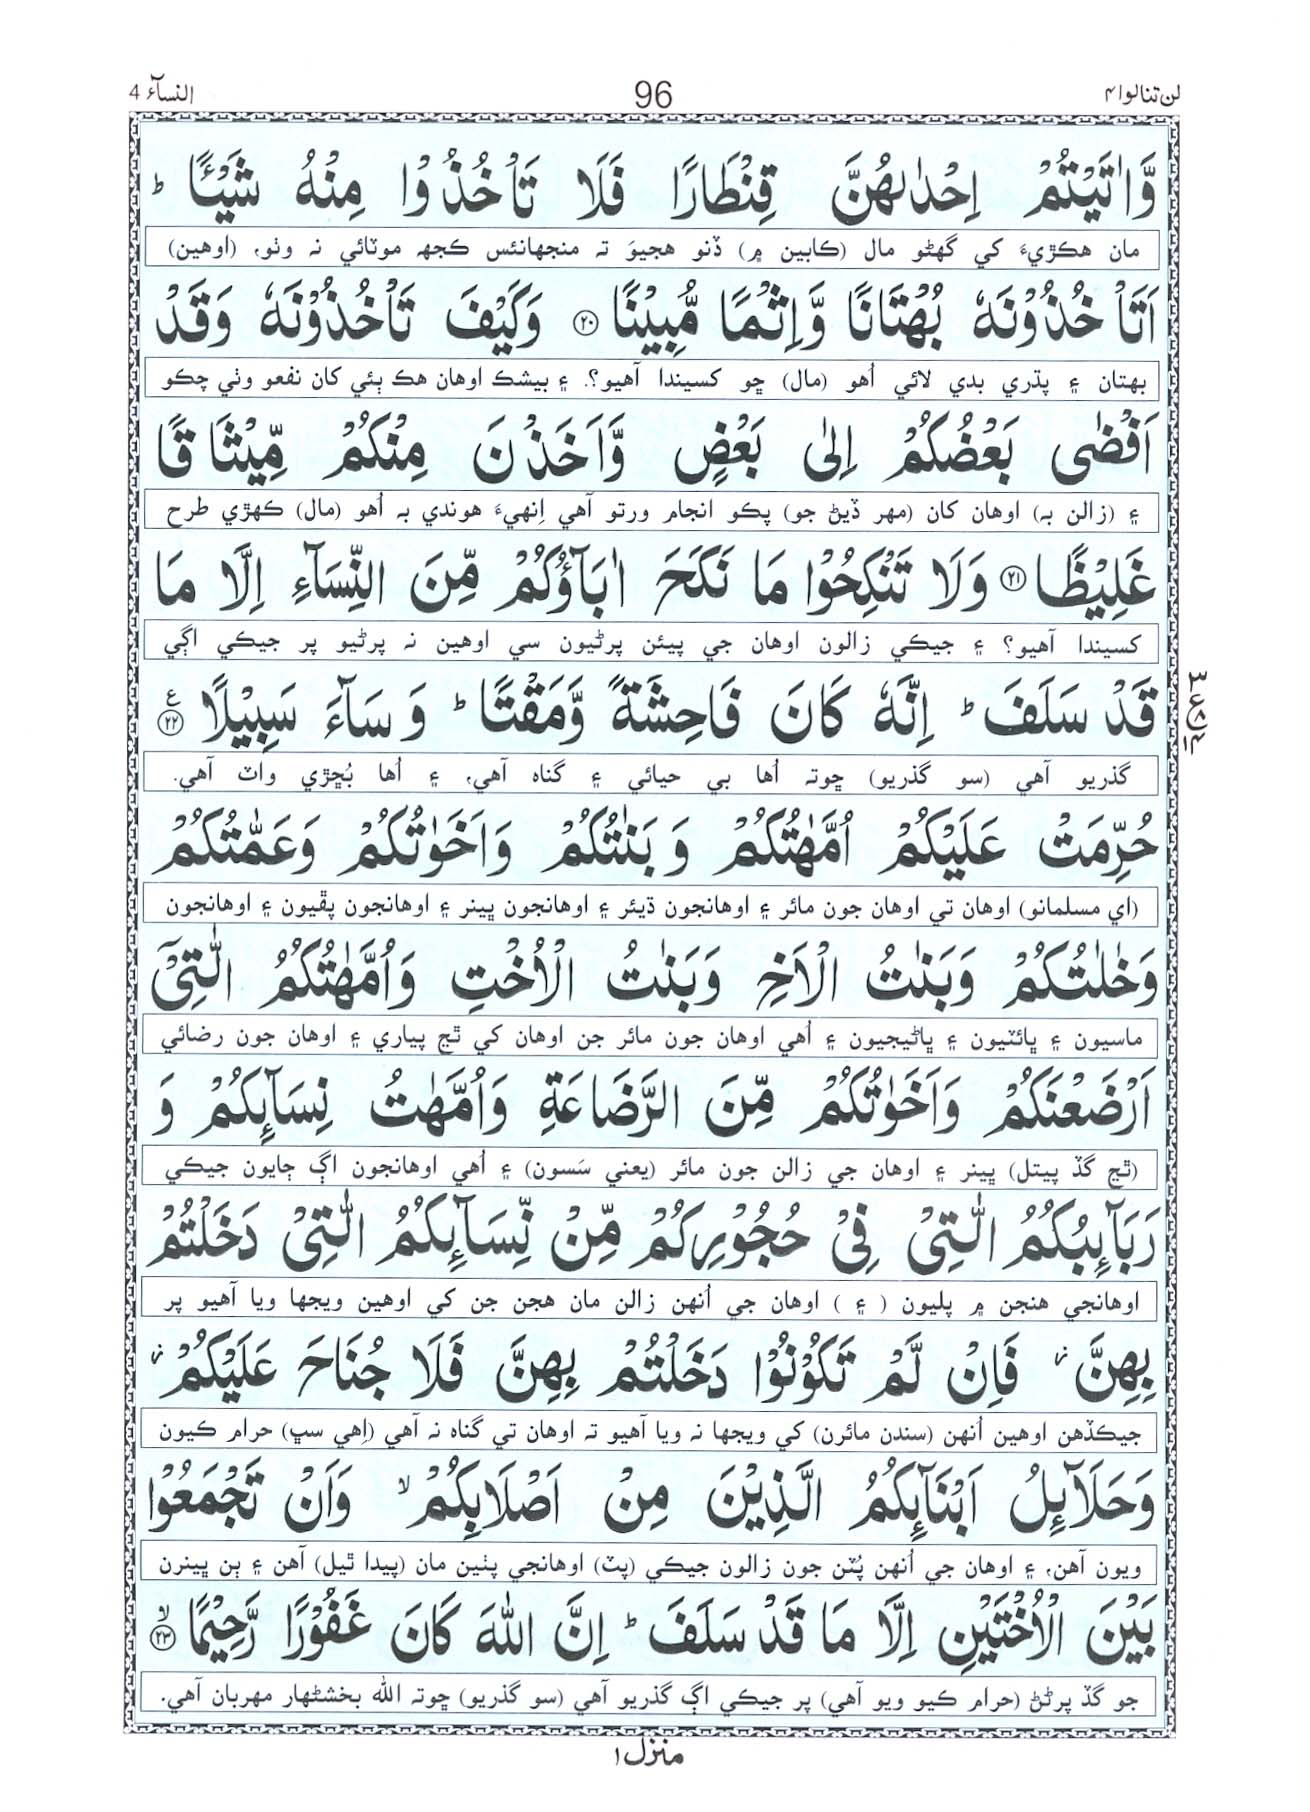 لن تنالوا ۴
96
النسآء 4
وَّاٰتَيْتُمْ اِحْدٰىهُنَّ قِنْطَارًا فَلَا تَاْخُذُوْا مِنْهُ شَيْـًٔا ؕ
مان هڪڙيءَ کي گهڻو مال (ڪابين ۾) ڏنو هجيوَ ته منجهانئس ڪجهه موٽائي نه وٺو، (اوهين)
اَتَاْخُذُوْنَهٗ بُهْتَانًا وَّاِثْمًا مُّبِيْنًا ﴿۲۰﴾ وَكَيْفَ تَاْخُذُوْنَهٗ وَقَدْ
بهتان ۽ پڌري بدي لائي اُهو (مال) ڇو کسيندا آهيو؟. ۽ بيشڪ اوهان هڪ ٻئي کان نفعو وٺي چڪو
اَفْضٰى بَعْضُكُمْ اِلٰى بَعْضٍ وَّاَخَذْنَ مِنْكُمْ مِّيْثَاقًا
۽ (زالن به) اوهان کان (مهر ڏيڻ جو) پڪو انجام ورتو آهي اِنهيءَ هوندي به اُهو (مال) ڪهڙي طرح
غَلِيْظًا ﴿۲۱﴾ وَلَا تَنْكِحُوْا مَا نَكَحَ اٰبَآؤُكُمْ مِّنَ النِّسَآءِ اِلَّا مَا
کسيندا آهيو؟ ۽ جيڪي زالون اوهان جي پيئن پرڻيون سي اوهين نه پرڻيو پر جيڪي اڳي
قَدْ سَلَفَ ؕ اِنَّهٗ كَانَ فَاحِشَةً وَّمَقْتًا ؕ وَسَآءَ سَبِيْلًا ﴿۲۲﴾ ع
۳ ع ۸ ۱۴
گذريو آهي (سو گذريو) ڇوته اُها بي حيائي ۽ گناه آهي، ۽ اُها بُڇڙي واٽ آهي.
حُرِّمَتْ عَلَيْكُمْ اُمَّهٰتُكُمْ وَبَنٰتُكُمْ وَاَخَوٰتُكُمْ وَعَمّٰتُكُمْ
(اي مسلمانو) اوهان تي اوهان جون مائر ۽ اوهانجون ڌيئر ۽ اوهانجون ڀينر ۽ اوهانجون پڦيون ۽ اوهانجون
وَخٰلٰتُكُمْ وَبَنٰتُ الْاَخِ وَبَنٰتُ الْاُخْتِ وَاُمَّهٰتُكُمُ الّٰتِيْٓ
ماسيون ۽ ڀائٽيون ۽ ڀاڻيجيون ۽ اُهي اوهان جون مائر جن اوهان کي ٿڃ پياري ۽ اوهان جون رضائي
اَرْضَعْنَكُمْ وَاَخَوٰتُكُمْ مِّنَ الرَّضَاعَةِ وَاُمَّهٰتُ نِسَآئِكُمْ وَ
(ٿڃ گڏ پيتل) ڀينر ۽ اوهان جي زالن جون مائر (يعني سَسون) ۽ اُهي اوهانجون اڳ ڄايون جيڪي
رَبَآئِبُكُمُ الّٰتِيْ فِيْ حُجُوْرِكُمْ مِّنْ نِّسَآئِكُمُ الّٰتِيْ دَخَلْتُمْ
اوهانجي هنجن ۾ پليون ( ۽ ) اوهان جي اُنهن زالن مان هجن جن کي اوهين ويجها ويا آهيو پر
بِهِنَّ ز فَاِنْ لَّمْ تَكُوْنُوْا دَخَلْتُمْ بِهِنَّ فَلَا جُنَاحَ عَلَيْكُمْ ز
جيڪڏهن اوهين اُنهن (سندن مائرن) کي ويجها نه ويا آهيو ته اوهان تي گناه نه آهي (اِهي سڀ) حرام ڪيون
وَحَلَآئِلُ اَبْنَآئِكُمُ الَّذِيْنَ مِنْ اَصْلَابِكُمْ ۙ وَاَنْ تَجْمَعُوْا
ويون آهن، ۽ اوهان جي اُنهن پُٽن جون زالون جيڪي (پٽ) اوهانجي پٺين مان (پيدا ٿيل) آهن ۽ ٻن ڀينرن
بَيْنَ الْاُخْتَيْنِ اِلَّا مَا قَدْ سَلَفَ ؕ اِنَّ اللّٰهَ كَانَ غَفُوْرًا رَّحِيْمًا ﴿۲۳﴾ ۙ
جو گڏ پرڻڻ (حرام ڪيو ويو آهي) پر جيڪي اڳ گذريو آهي (سو گذريو) ڇوته الله بخشڻهار مهربان آهي.
منزل ۱